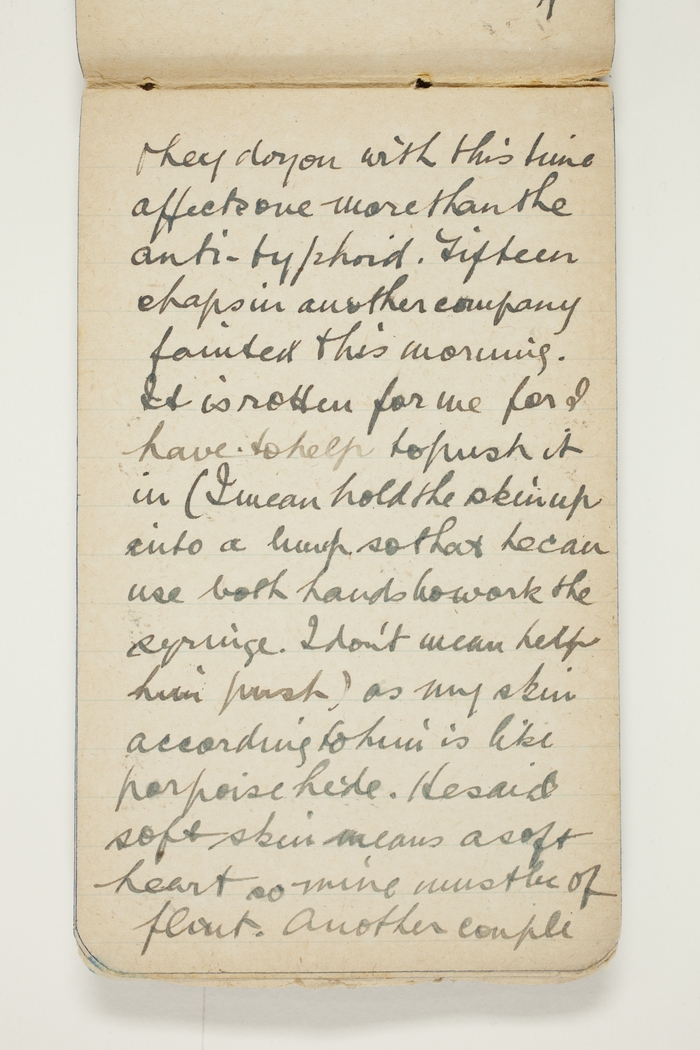 they do you with this time
affects one more than the
anti-typhoid. Fifteen
chaps in another company
fainted this morning.
It is rotten for me for I
have to help to push it
in (I mean hold the skin up
into a lump so that he can
use both hands to work the
syringe. I don't mean help
him push) as my skin
according to him is like
porpoise hide. He said
soft skin means a soft
heart so mine must be of
flint. Another couple